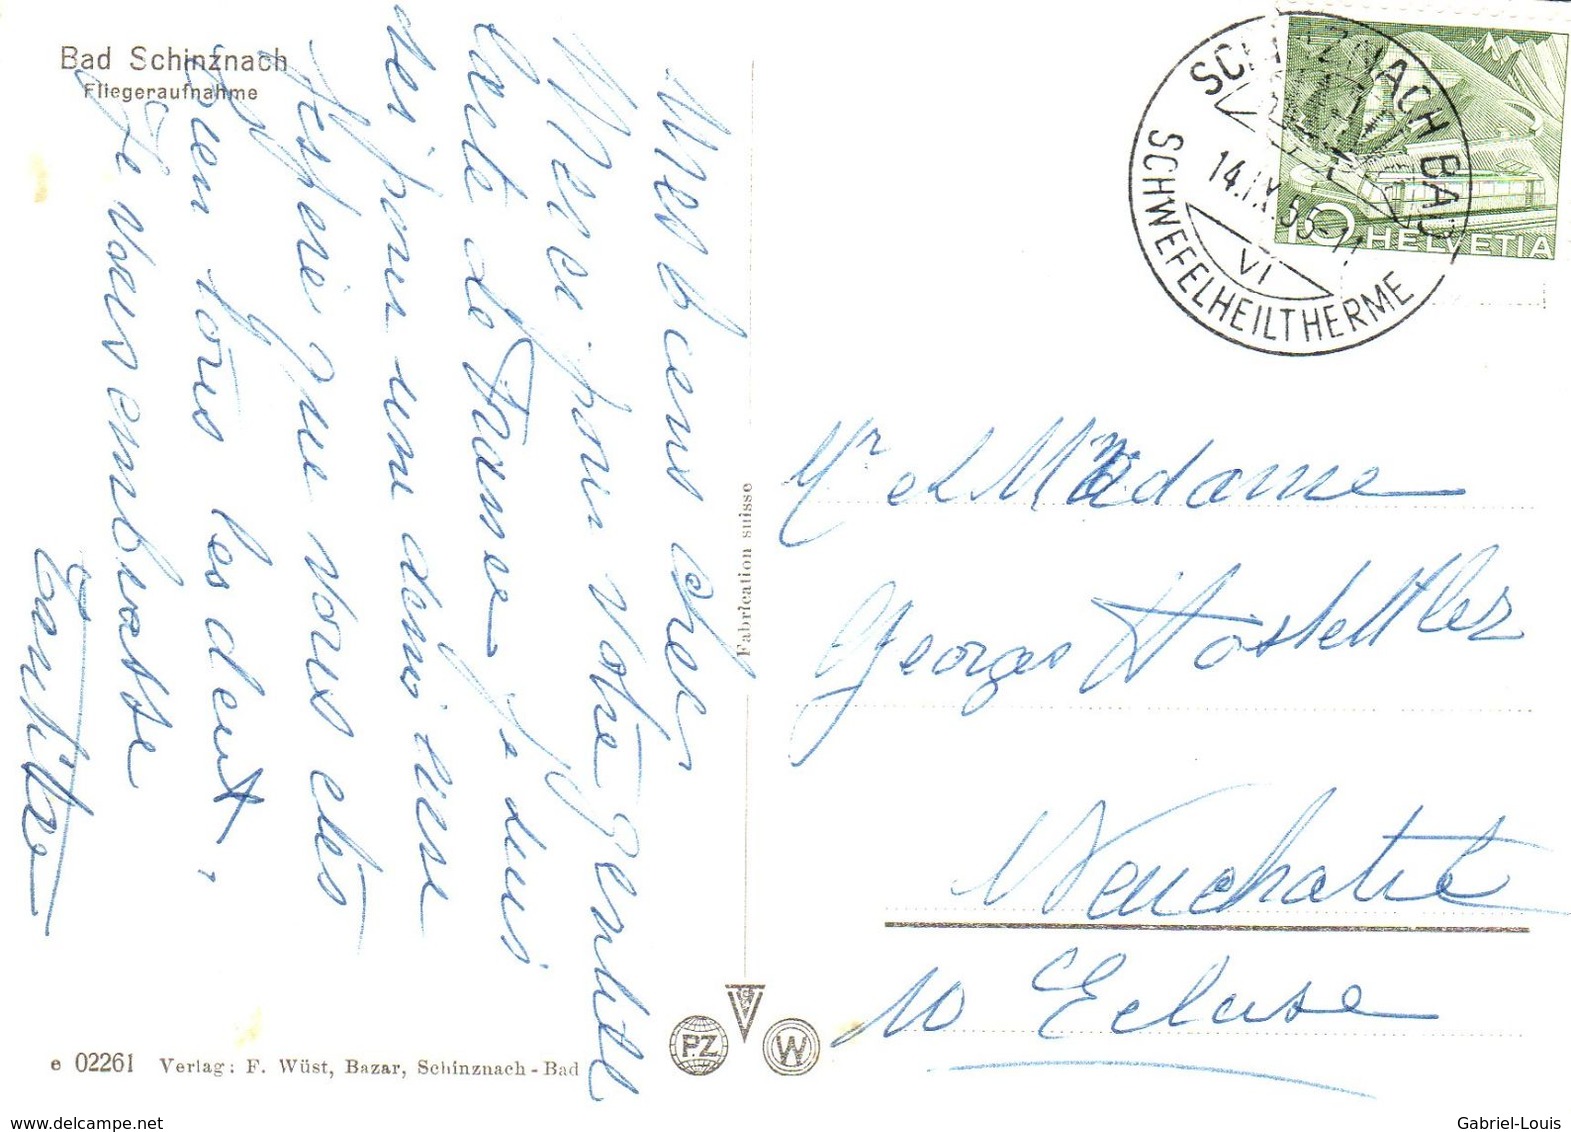 Bad Schinznach
Fliegeraufnahme
Mes biens chers
Merci pour votre gentille
carte de France, je suis
ici pour une demi
J'espère que vous êtes
bien tous les deux,
Je vous embrasse
SCHINZNACH BAD
14.IX.55-11
VI
SCHWEFELHEILTHERME
10 HELVETIA
Mr et Madame
Georges Hostettler
Neuchatel
10 Ecluse
Fabrication suisse
PZ
W
e 02261 Verlag: F. Wüst, Bazar, Schinznach-Bad
www.delcampe.net
Gabriel-Louis